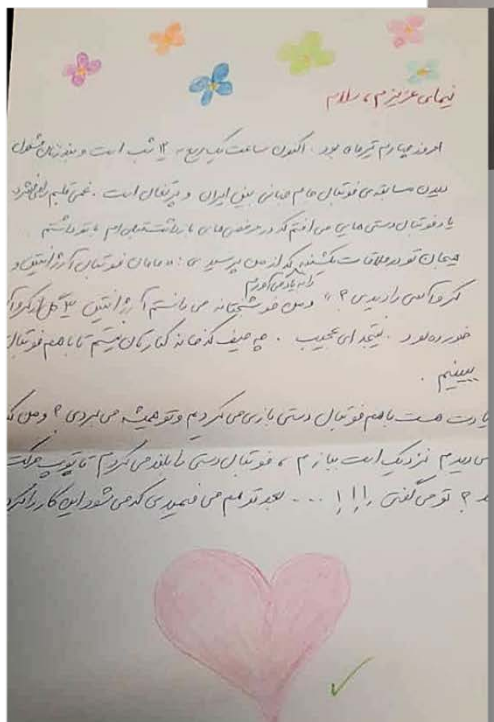 نیمای عزیزم، سلام
امروز چهارم تیرماه بود. اکنون ساعت یک ربع به ۱۲ شب است و بند زنان مشغول
دیدن مسابقه‌ی فوتبال جام جهانی بین ایران و پرتغال است. غمی قلبم را می‌فشرد
یاد فوتبال دستی‌هایی می‌افتم که در مرخصی‌های بازداشتگاه‌ام با تو داشتم
هیجان تو در ملاقات یکشنبه که از من پرسیدی: «مامان فوتبال آرژانتین و
را به یاد می‌آورم
کرواسی را دیدی؟» و من خوشبختانه می‌دانستم آرژانتین ۳ گل از کروا
خورده بود. نتیجه‌ای عجیب. چه حیف که خانه کنارتان نیستم تا با هم فوتبال
ببینیم.
یادت هست با هم فوتبال دستی بازی می‌کردیم و تو همیشه می‌بردی؟ و من که
می‌دیدم نزدیک است ببازم، فوتبال دستی را بلند می‌کردم تا توپ حرکت
ند؟ تو می‌گفتی !!! ... بعد تو هم می‌فهمیدی که می‌شود این کار را کرد